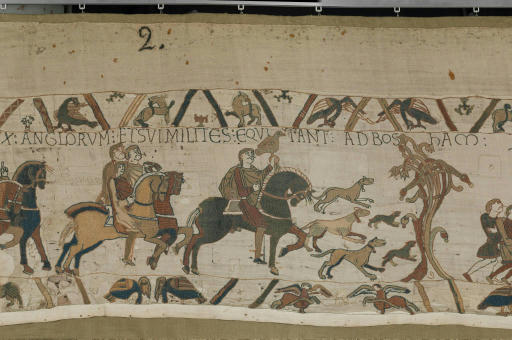 2.
X: ANGLORVM: ET SVI MILITES: EQVITANT: AD BOSHAM: